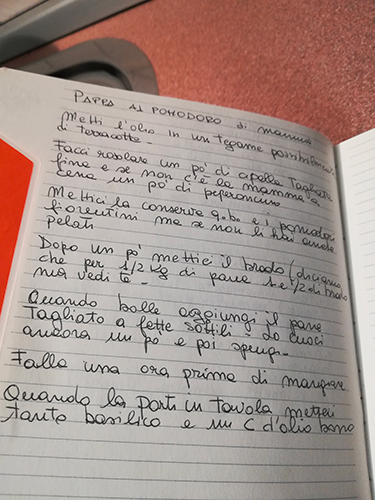 PAPPA AL POMODORO di mamma
Metti l'olio in un tegame possibilmente
di terracotta -
Facci rosolare un po' di cipolla tagliata
fine e se non c'è la mamma a
cena un po' di peperoncino
Mettici la conserva q.b. e i pomodori
fiorentini ma se non li hai anche
pelati
Dopo un po' mettici il brodo (diciamo
che per 1/2 Kg di pane 1 e 1/2 di brodo
ma vedi te -
Quando bolle aggiungi il pane
tagliato a fette sottili - Lo cuoci
ancora un po e poi spengi -
Falla una ora prima di mangiare
Quando la porti in tavola metteci
tanto basilico e un C d'olio buono